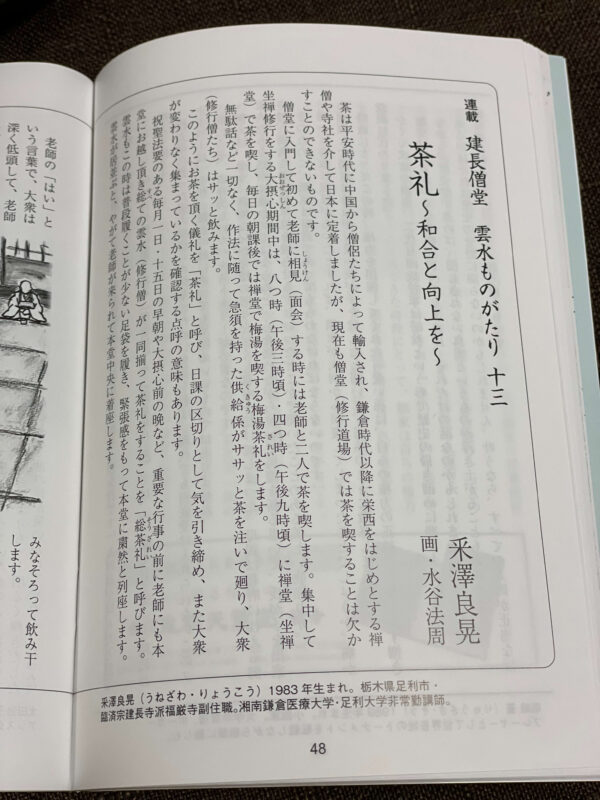 連載　建長僧堂　雲水ものがたり　十三
茶礼～和合と向上を～
采澤良晃
画・水谷法周
茶は平安時代に中国から僧侶たちによって輸入され、鎌倉時代以降に栄西をはじめとする禅
僧や寺社を介して日本に定着しましたが、現在も僧堂（修行道場）では茶を喫することは欠か
すことのできないものです。
僧堂に入門して初めて老師に相見（面会）する時には老師と二人で茶を喫します。集中して
坐禅修行をする大摂心期間中は、八つ時（午後三時頃）・四つ時（午後九時頃）に禅堂（坐禅
堂）で茶を喫し、毎日の朝課後では禅堂で梅湯を喫する梅湯茶礼をします。
無駄話など一切なく、作法に随って急須を持った供給係がササッと茶を注いで廻り、大衆
（修行僧たち）はサッと飲みます。
このようにお茶を頂く儀礼を「茶礼」と呼び、日課の区切りとして気を引き締め、また大衆
が変わりなく集まっているかを確認する点呼の意味もあります。
祝聖法要のある毎月一日・十五日の早朝や大摂心前の晩など、重要な行事の前に老師にも本
堂にお越し頂き総ての雲水（修行僧）が一同揃って茶礼をすることを「総茶礼」と呼びます。
雲水もこの時は普段履くことが少ない足袋を履き、緊張感をもって本堂に粛然と列座します。
雲水が居並ぶと、やがて老師が来られて本堂中央に着座します。
采澤良晃（うねざわ・りょうこう）1983年生まれ。栃木県足利市・
臨済宗建長寺派福厳寺副住職。湘南鎌倉医療大学・足利大学非常勤講師。
48
老師の「はい」と
いう言葉で、大衆は
深く低頭して、老師
みなそろって飲み干
します。